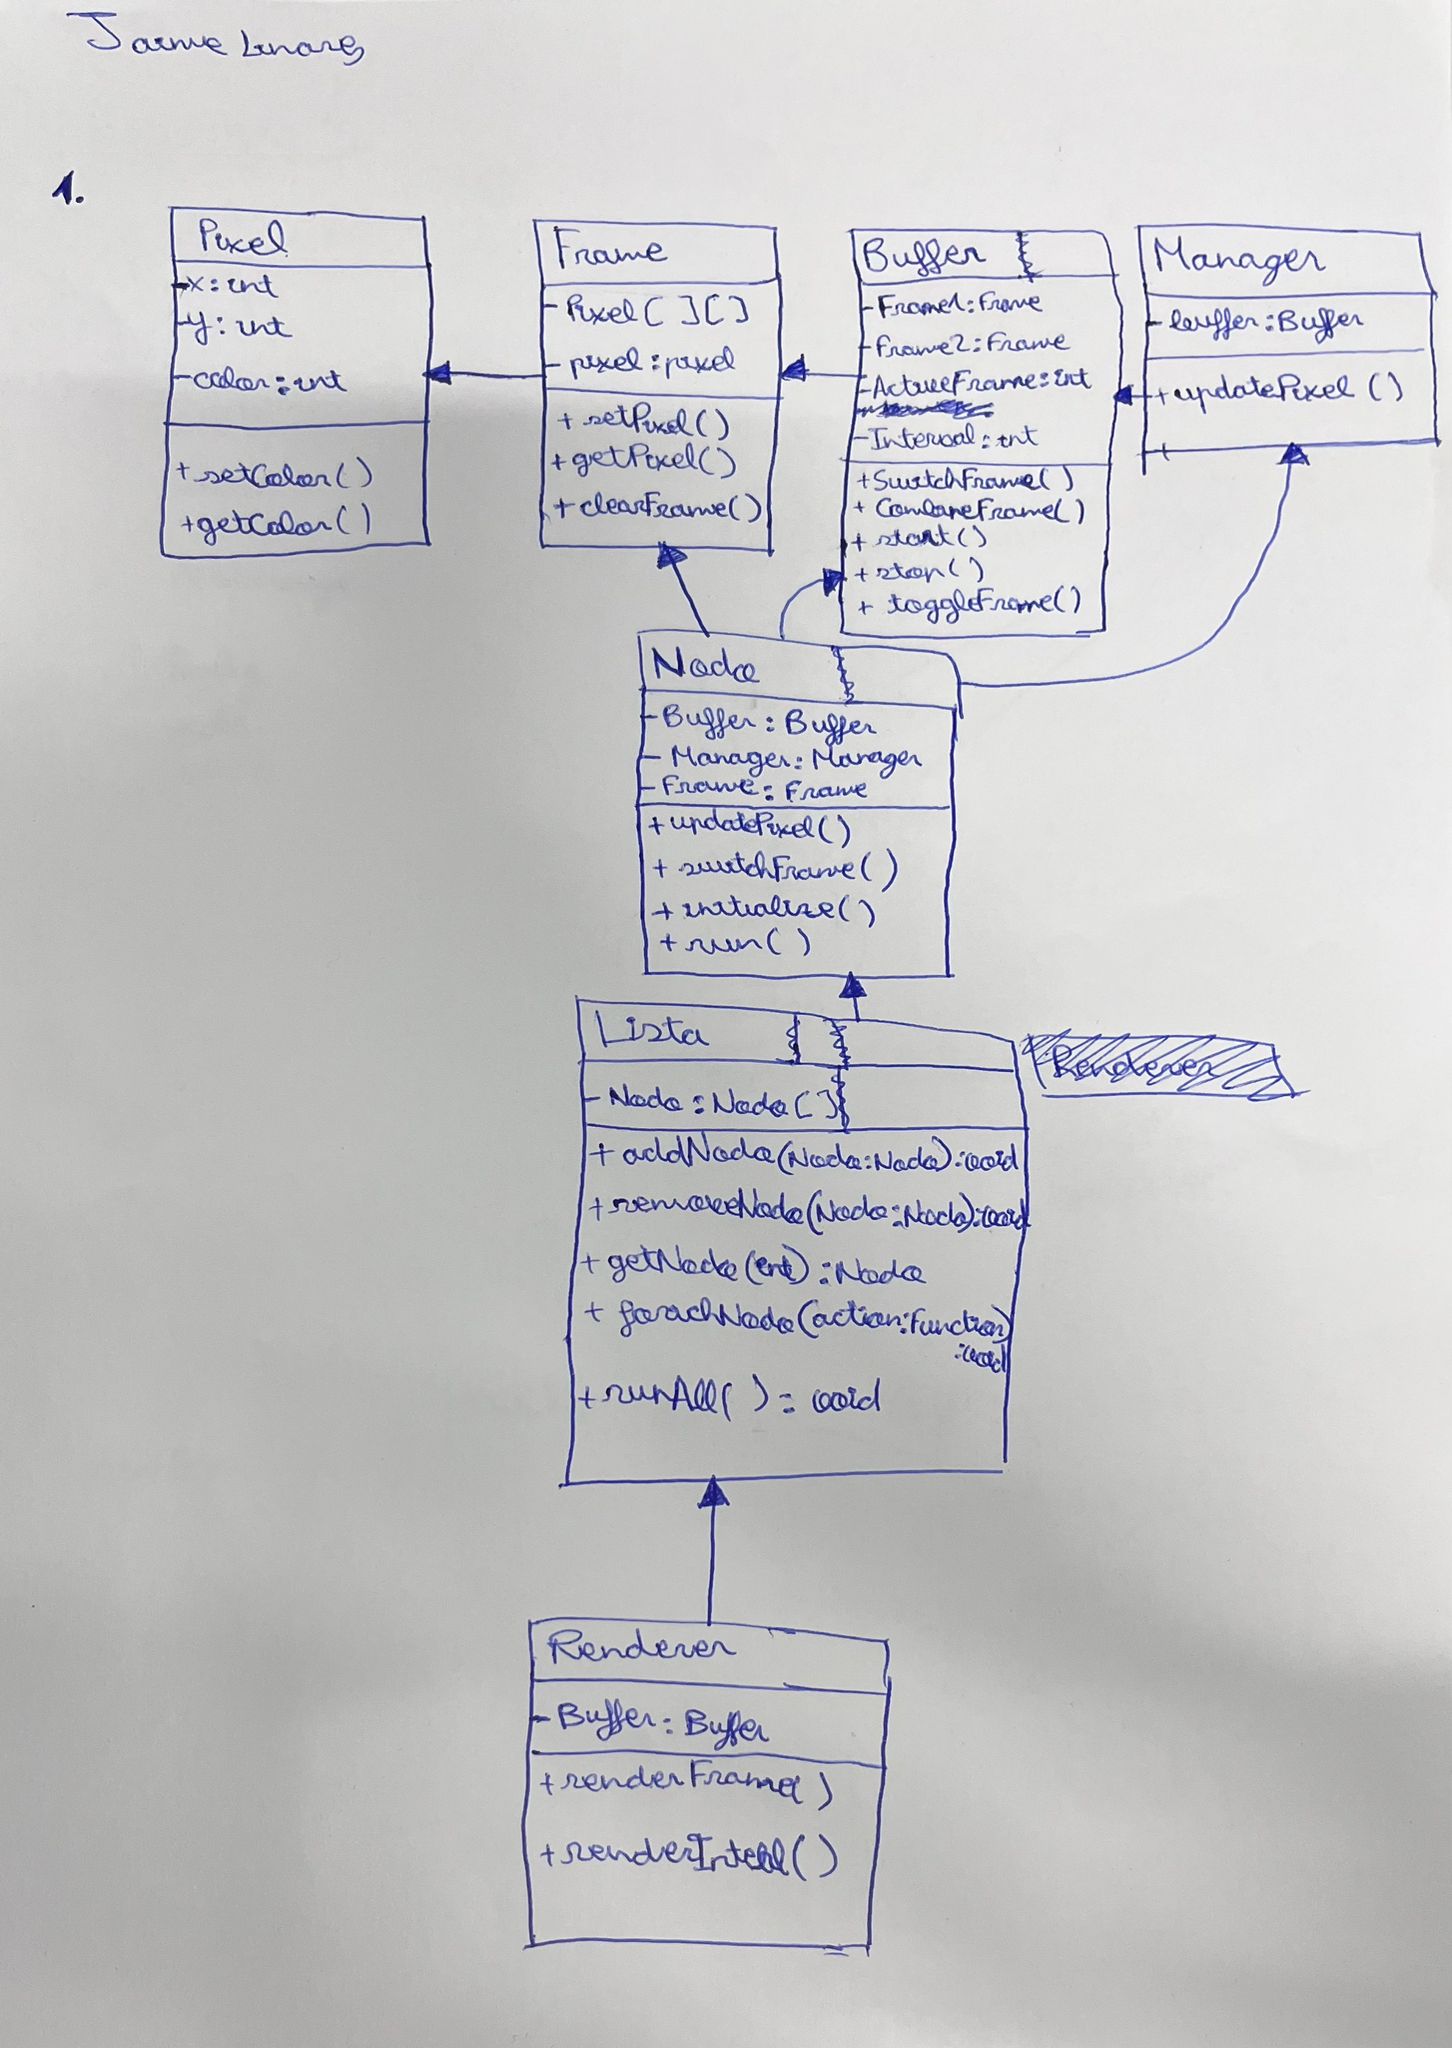 Jaime Linares
1.
Pixel
-x: int
-y: int
-color: int
+setColor()
+getColor()
Frame
- Pixel[ ][ ]
- pixel: pixel
+ setPixel()
+getPixel()
+ clearFrame()
Buffer
-Frame1: Frame
-Frame2: Frame
-ActualFrame: int
-Interval: int
+SwitchFrame()
+ CompareFrame()
+ start()
+ stop()
+ toggleFrame()
Manager
- buffer: Buffer
+ updatePixel()
+
Nodo
-Buffer: Buffer
- Manager: Manager
- Frame: Frame
+updatePixel()
+ switchFrame()
+ initialize()
+ run()
Lista
- Nodo: Nodo[ ]
+ addNodo(Nodo:Nodo):void
+removeNodo(Nodo:Nodo):void
+ getNodo(int): Nodo
+ forachNodo(action:Function)
:void
+runAll( ): void
Renderer
Renderer
- Buffer: Buffer
+renderFrame()